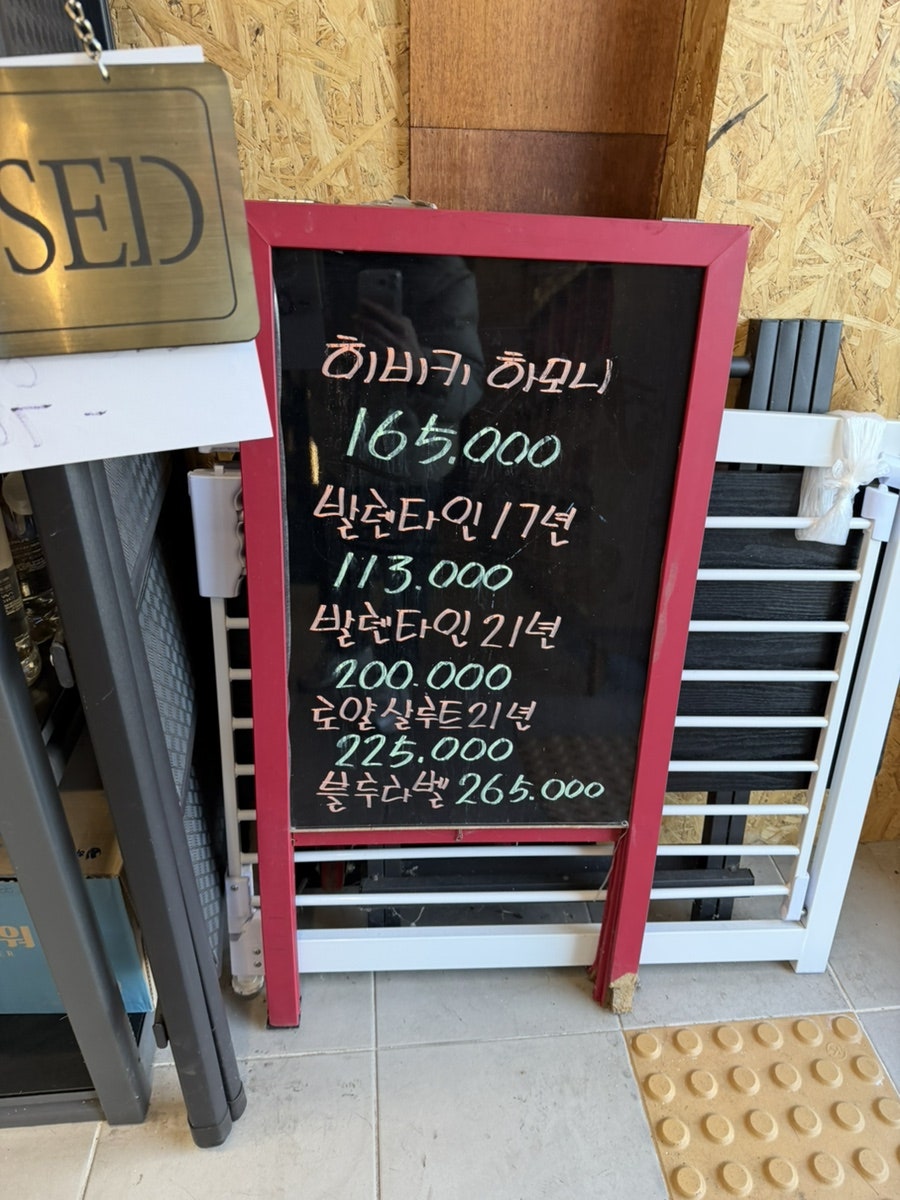 SED
히비키 하모니
165.000
발렌타인 17년
113.000
발렌타인 21년
200.000
로얄살루트 21년
225.000
블루라벨 265.000